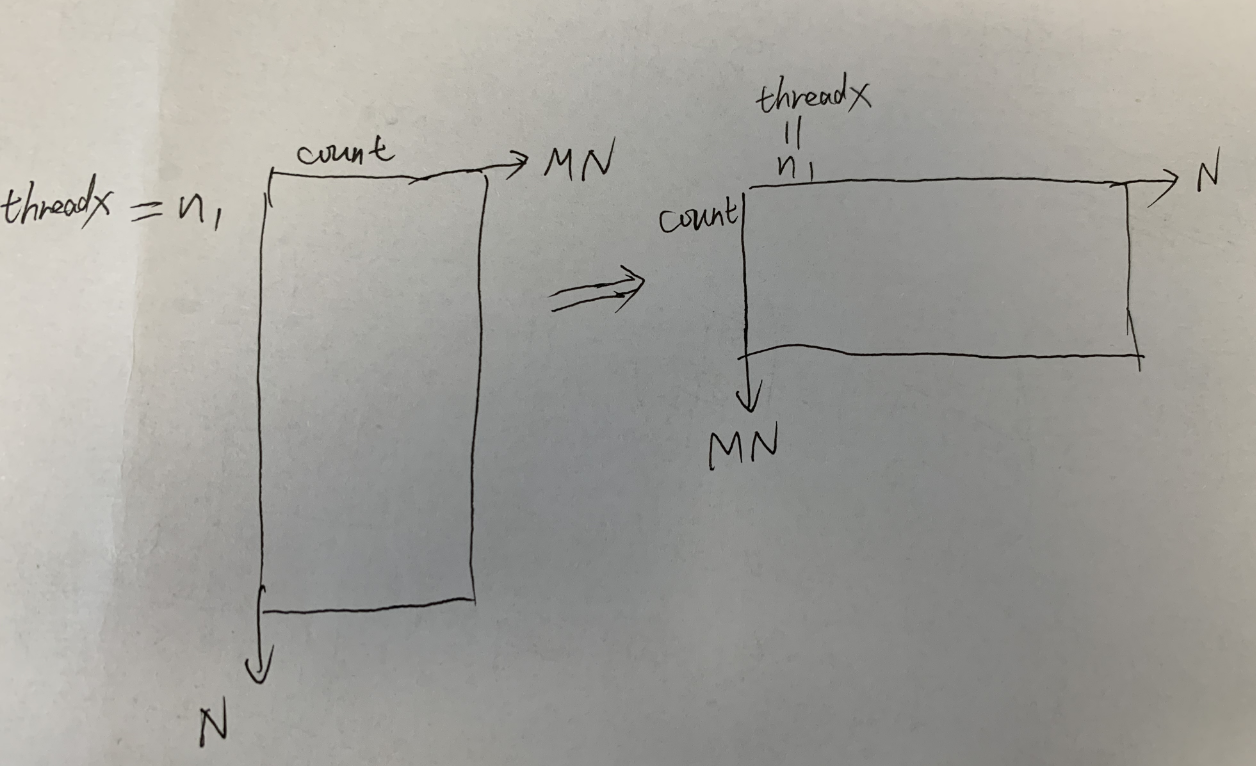 count
MN
threadx = n₁
N
⇒
threadx
=
n₁
N
count
MN